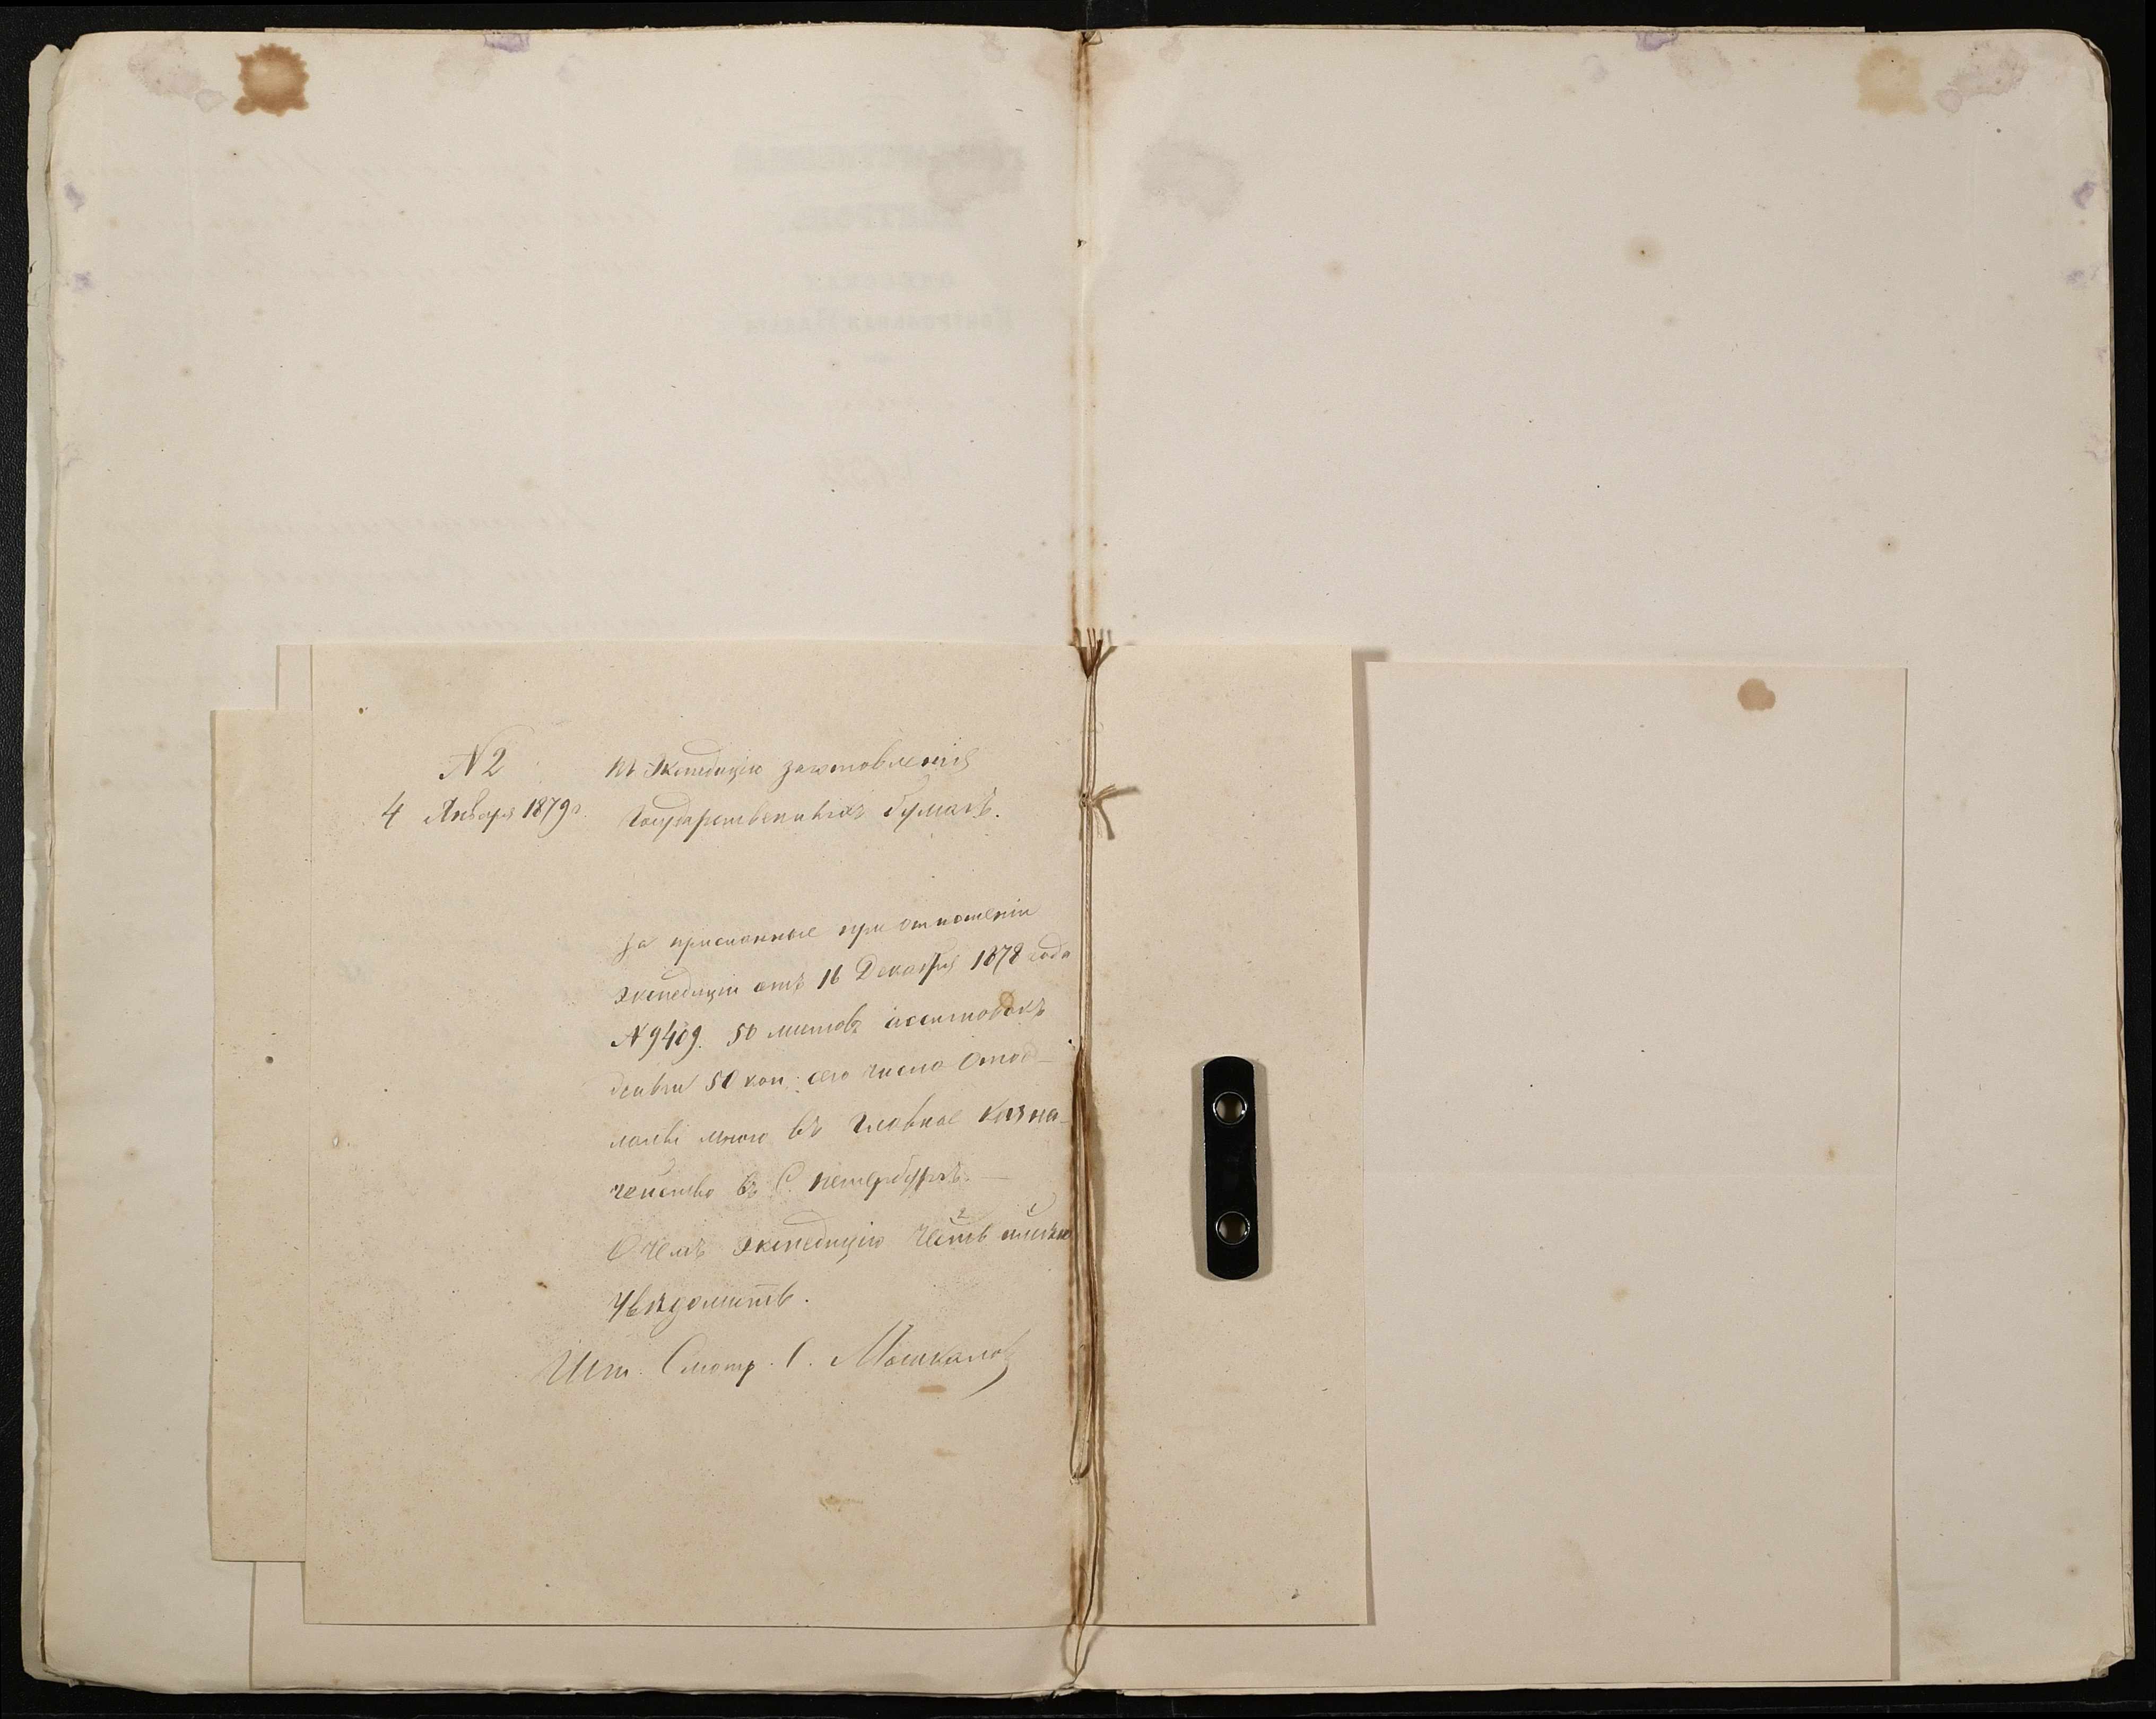 N 2
4 Января 1879 г.
Въ Экспедицію заготовленія
Государственныхъ бумагъ.
За присланные при отношеніи
Экспедиціи отъ 16 Декабря 1878 года
N 9409. 50 листовъ ассигновокъ
деньги 50 коп. сего числа Отос-
ланы мною въ Главное Казна-
чейство въ С. Петербургѣ. —
О чемъ Экспедицію честь имѣю
Увѣдомить.
Смотр. С. Машкалов